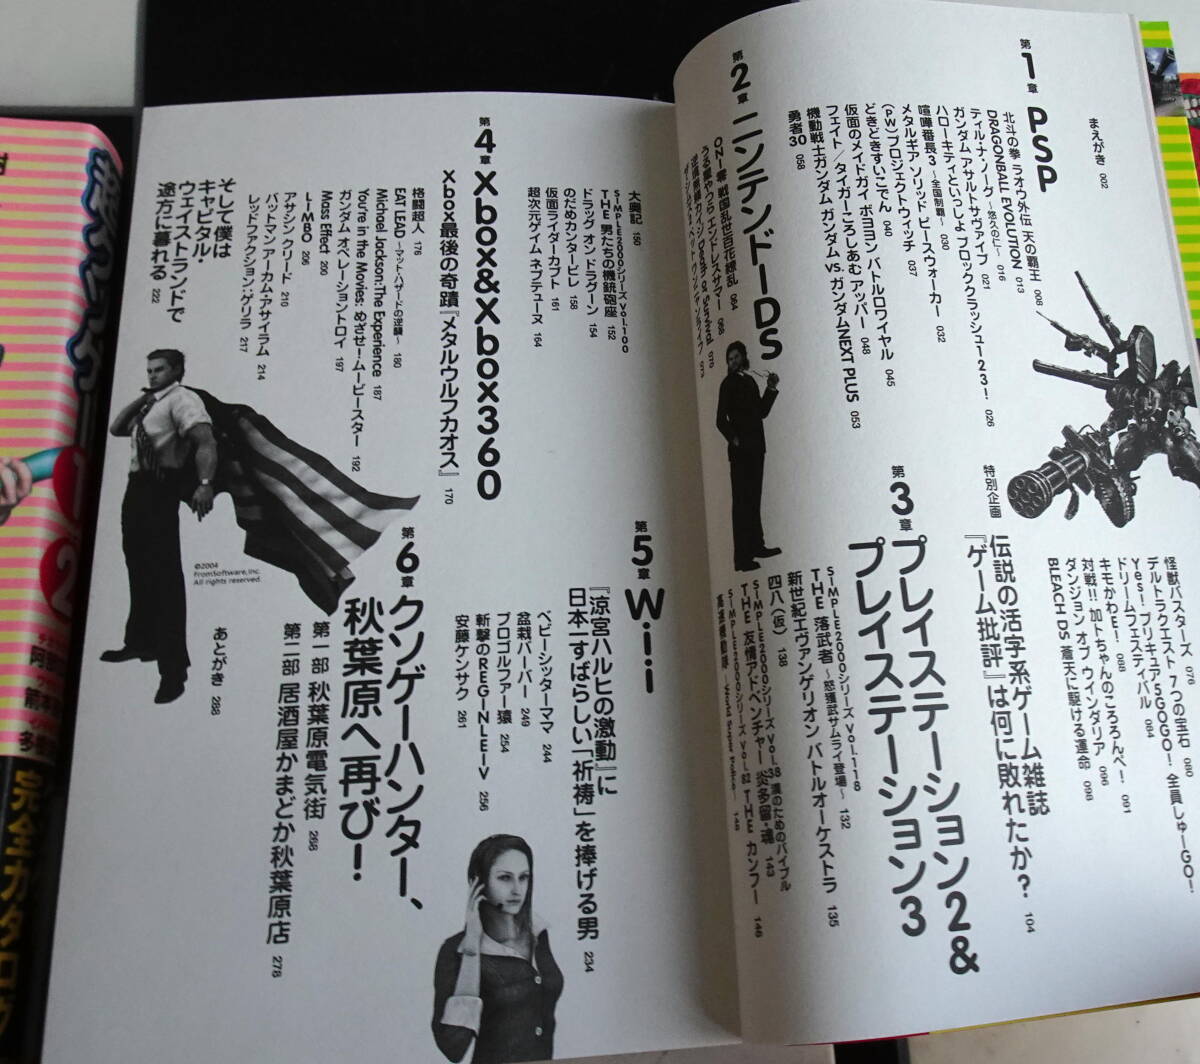 まえがき 002
第1章 PSP
北斗の拳 ラオウ外伝 天の覇王 008
DRAGONBALL EVOLUTION 013
ティル・ナ・ノーグ 〜悠久の仁〜 016
ガンダム アサルトサヴァイブ 021
ハローキティといっしょ ブロッククラッシュ123! 026
喧嘩番長3 〜全国制覇〜 030
メタルギア ソリッド ピースウォーカー 032
(PW)プロジェクトウィッチ 037
どきどきすいこでん 040
仮面のメイドガイ ボヨヨンバトルロワイヤル 045
フェイト/タイガーころしあむ アッパー 048
機動戦士ガンダム ガンダムVS.ガンダムNEXT PLUS 053
勇者30 058
第2章 ニンテンドーDS
ONI零 戦国乱世百花繚乱 064
うる星やつら エンドレスサマー 068
逆境無頼カイジ Death or Survival 070
073
怪獣バスターズ 076
デルトラクエスト 7つの宝石 080
Yes!プリキュア5GOGO! 全員しゅーGO!
ドリームフェスティバル 084
キモかわE! 088
対戦!! 加トちゃんのころろんぺ! 091
ダンジョン オブ ウインダリア 096
BLEACH DS 蒼天に駆ける運命 098
特別企画
伝説の活字系ゲーム雑誌
『ゲーム批評』は何に敗れたか? 104
第3章 プレイステーション2&
プレイステーション3
SIMPLE2000シリーズ Vol.118
THE 落武者 〜怒獲武サムライ登場〜 132
新世紀エヴァンゲリオン バトルオーケストラ 135
四八(仮) 138
SIMPLE2000シリーズ Vol.38 漢のためのバイブル
THE 友情アドベンチャー 炎多留・魂 143
146
大奥記 150
SIMPLE2000シリーズ Vol.100
THE 男たちの機銃砲座 152
ドラッグ オン ドラグーン 154
のだめカンタービレ 158
仮面ライダーカブト 161
超次元ゲイム ネプテューヌ 164
第4章 Xbox&Xbox360
Xbox最後の奇蹟『メタルウルフカオス』 170
格闘超人 176
EAT LEAD 〜マット・ハザードの逆襲〜 180
Michael Jackson:The Experience 187
You're in the Movies:めざせ!ムービースター 192
ガンダム オペレーショントロイ 197
Mass Effect 200
LIMBO 206
アサシン クリード 210
バットマン アーカム・アサイラム 214
レッドファクション:ゲリラ 217
そして僕は
キャピタル・
ウェイストランドで
途方に暮れる 222
©2004
FromSoftware,Inc.
All rights reserved.
第5章 Wii
『涼宮ハルヒの激動』に
日本一すばらしい「祈祷」を捧げる男 234
ベビーシッターママ 244
盆栽バーバー 249
プロゴルファー猿 254
斬撃のREGINLEIV 256
安藤ケンサク 261
第6章 クソゲーハンター、
秋葉原へ再び!
第一部 秋葉原電気街 268
第二部 居酒屋かまどか秋葉原店 278
あとがき 288